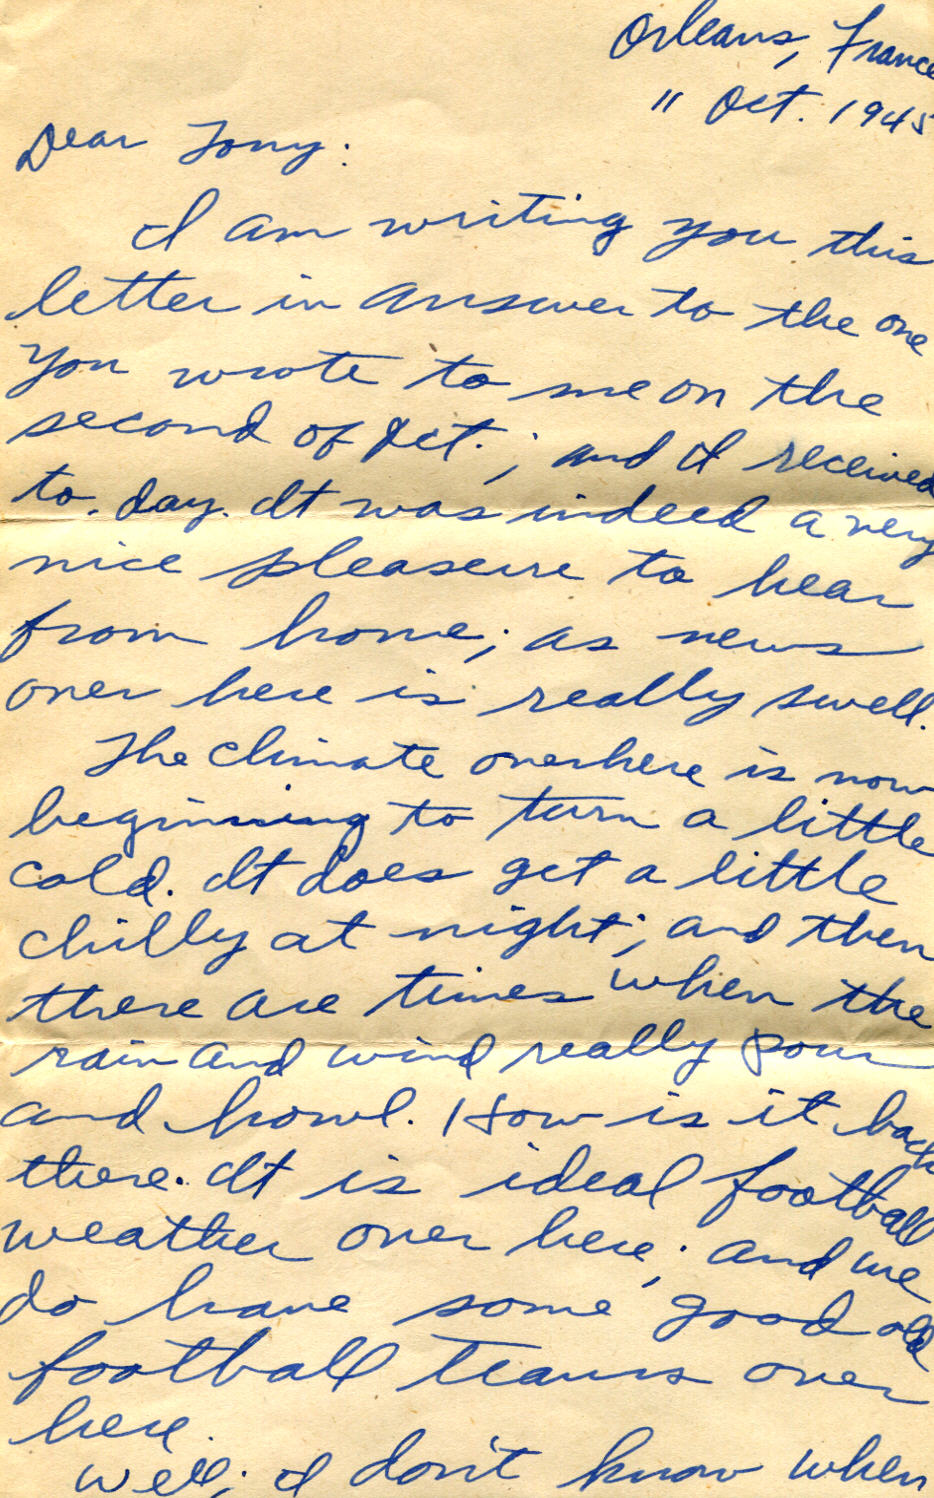 Orleans, France
11 Oct. 1945
Dear Tony:
I am writing you this
letter in answer to the one
you wrote to me on the
second of Oct.; and I received
to-day. It was indeed a very
nice pleasure to hear
from home; as news
over here is really swell.
The climate overhere is now
beginning to turn a little
cold. It does get a little
chilly at night; and then
there are times when the
rain and wind really pour
and howl. How is it back
there. It is ideal football
weather over here; and we
do have some good old
football teams over
here.
Well; I don't know when